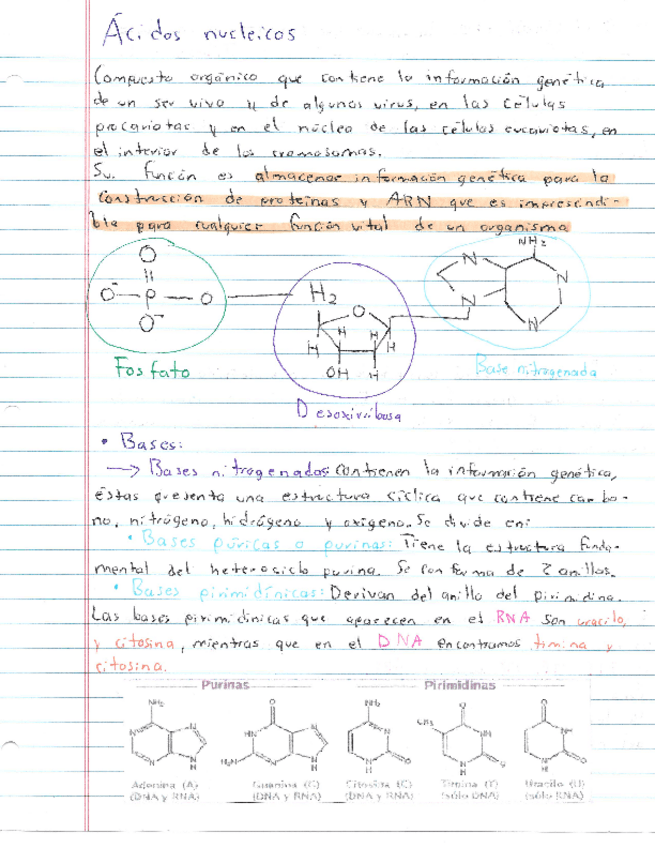 Ácidos nucleicos
Compuesto orgánico que contiene la información genética
de un ser vivo y de algunos virus, en las células
procariotas y en el núcleo de las células eucariotas, en
el interior de los cromosomas.
Su función es almacenar información genética para la
construcción de proteínas y ARN que es imprescindi-
ble para cualquier función vital de un organismo
NH2
O
N
N
O⁻ P O
H2
O
N
O⁻
N
H H
H H
Fosfato
OH H
Base nitrogenada
Desoxirribosa
• Bases:
→ Bases nitrogenadas: Contienen la información genética,
éstas presenta una estructura cíclica que contiene carbo-
no, nitrógeno, hidrógeno y oxígeno. Se divide en:
• Bases púricas o purinas: Tiene la estructura funda-
mental del heterociclo purina. Se conforma de 2 anillos.
• Bases pirimidínicas: Derivan del anillo del pirimidina.
Las bases pirimidinicas que aparecen en el RNA son uracilo,
y citosina, mientras que en el DNA encontramos timina y
citosina.
Purinas Pirimidinas
NH2 O NH2 O O
N N HN N N CH3 NH NH
N N H2N N N O N O N O
H H H H H
Adenina (A) Guanina (G) Citosina (C) Timina (T) Uracilo (U)
(DNA y RNA) (DNA y RNA) (DNA y RNA) (sólo DNA) (sólo RNA)